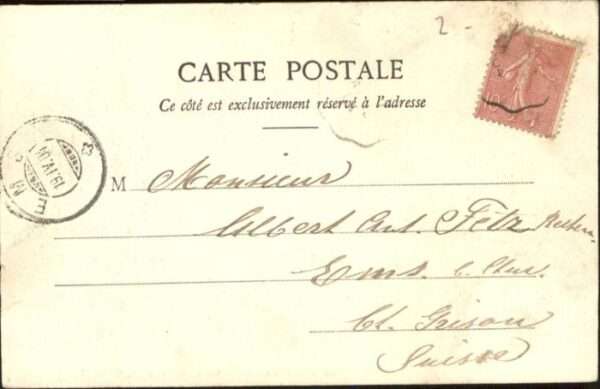 2-
CARTE POSTALE
Ce côté est exclusivement réservé à l'adresse
M Monsieur
Albert Ant. Fetz
Ems b. Chur.
Ct. Grison
Suisse